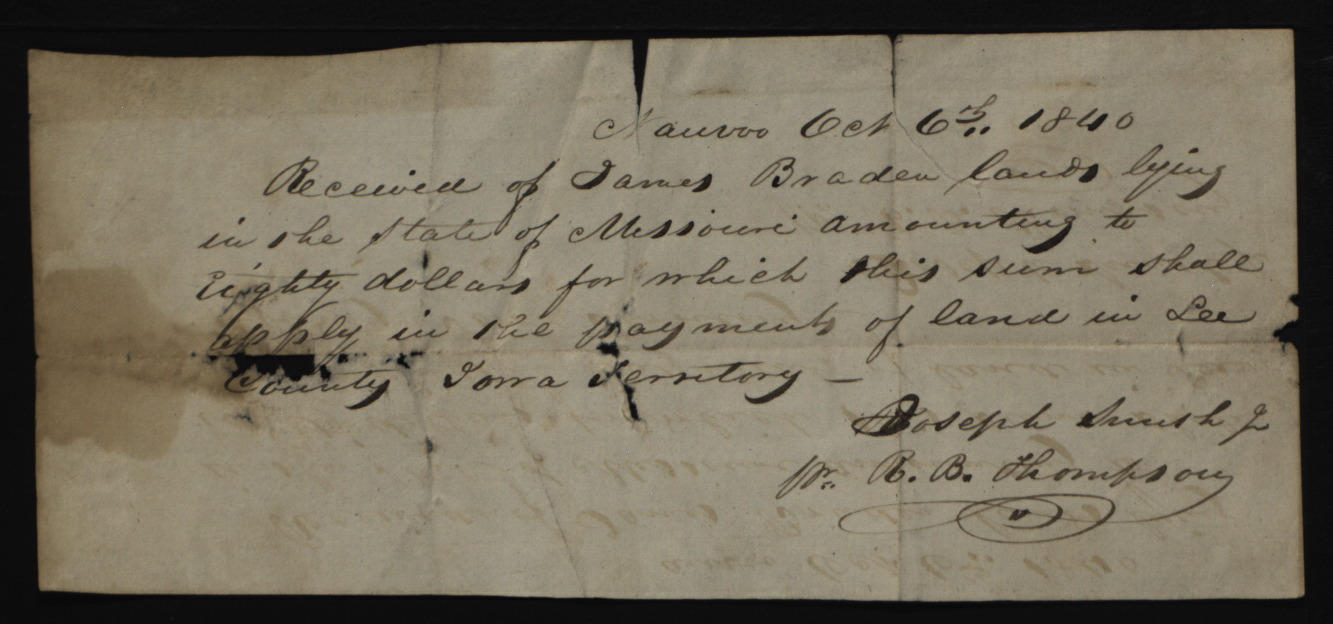 Nauvoo Oct 6th. 1840
Received of James Braden lands lying
in the State of Missouri amounting to
Eighty dollars for which this sum shall
apply in the payments of land in Lee
County Iowa Territory —
Joseph Smith Jr
pr. R. B. Thompson